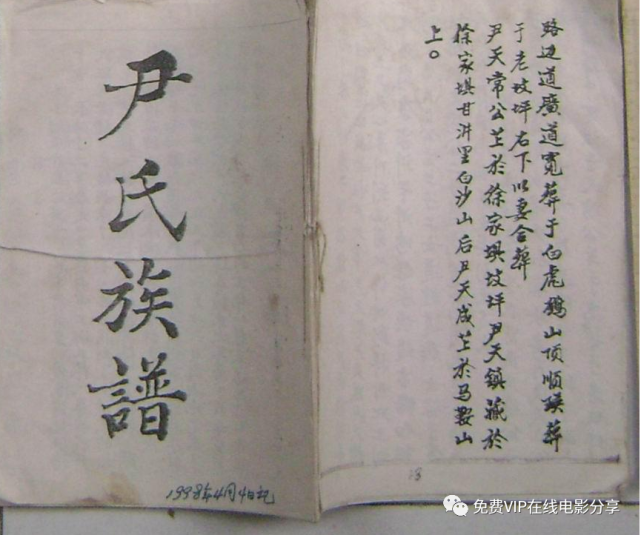 尹氏族譜
1998年4月4日記
路边道廣道寬葬于白虎鹅山顶順瑛葬
于老坟坪右下以妻合葬
尹天常公葬於徐家埧坟坪尹天鎮藏於
徐家埧甘沖里白沙山后尹天成葬於马鞍山
上。
18
免费VIP在线电影分享